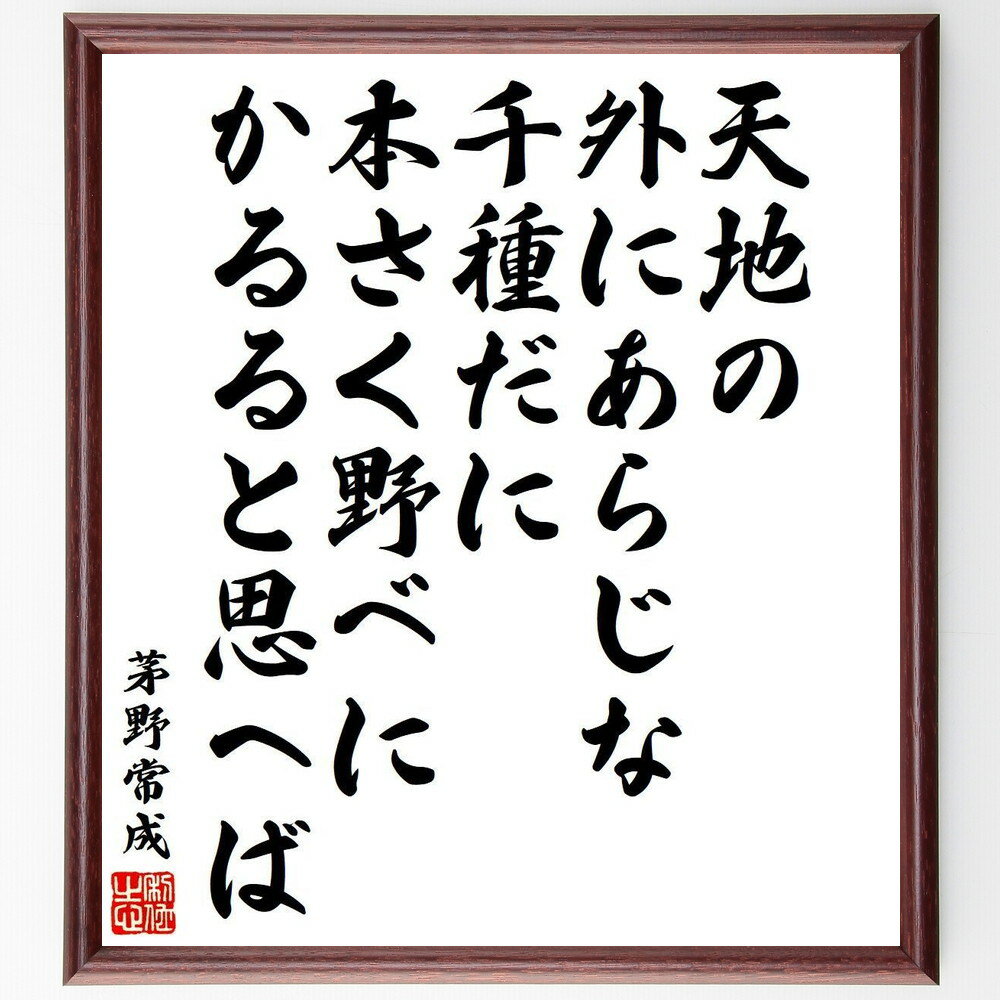 天地の
外にあらじな
千種だに
本さく野べに
かるると思へば
茅野常成